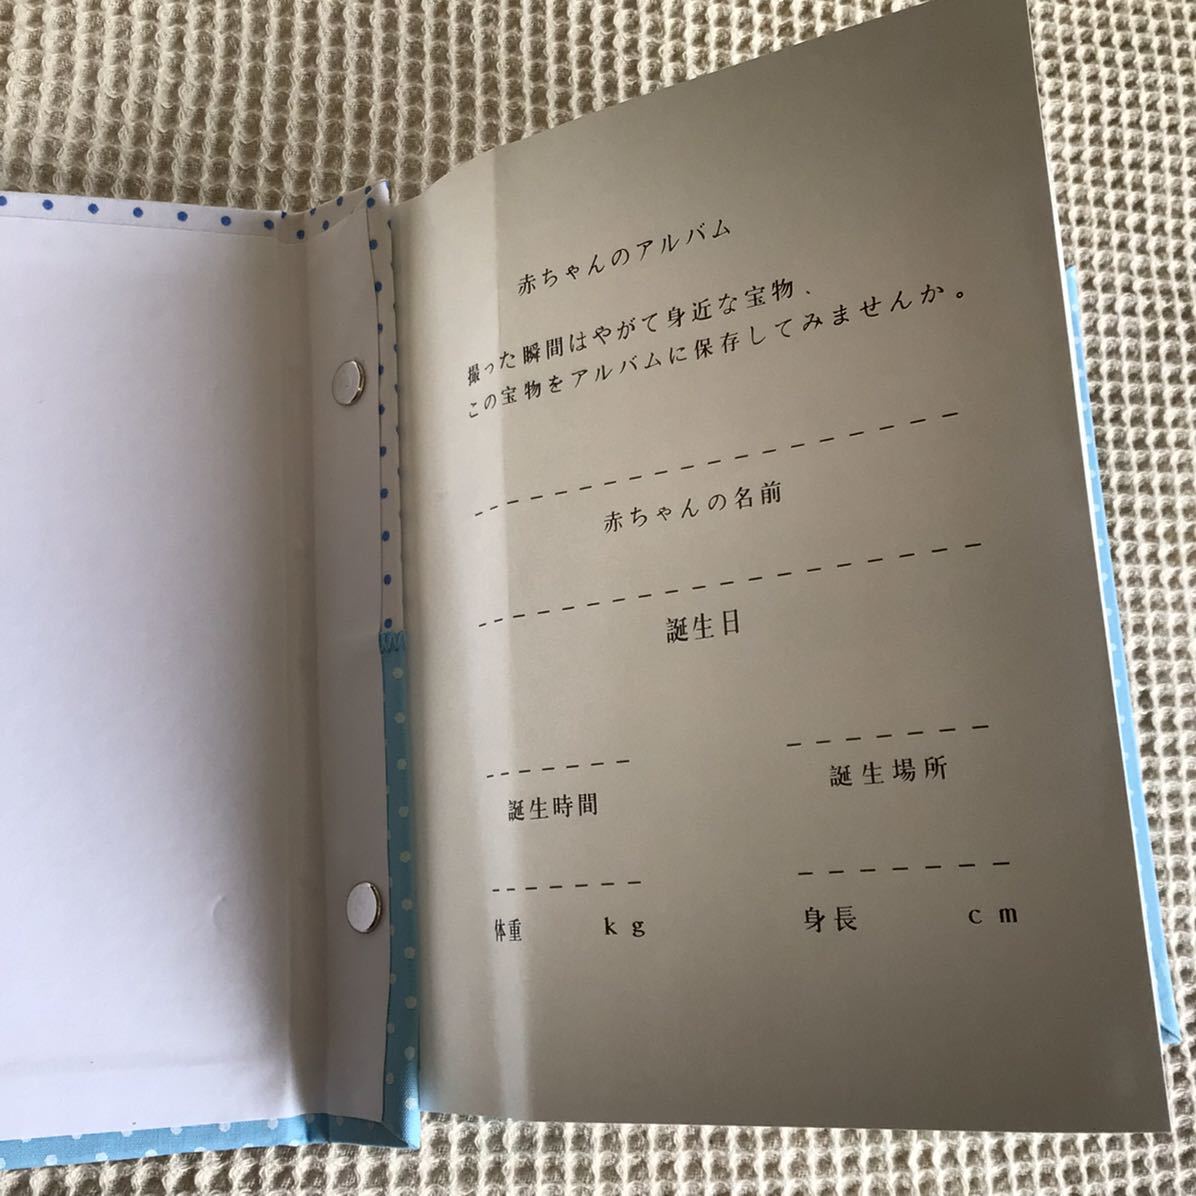 赤ちゃんのアルバム
撮った瞬間はやがて身近な宝物、
この宝物をアルバムに保存してみませんか。
赤ちゃんの名前
誕生日
誕生時間 誕生場所
体重 kg 身長 cm